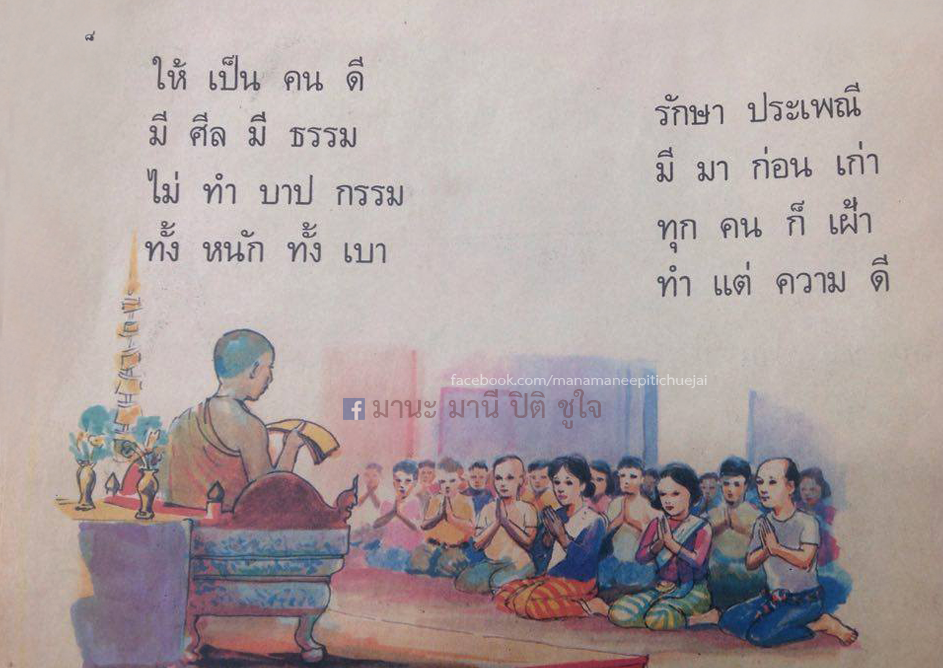 ๘
ให้ เป็น คน ดี
มี ศีล มี ธรรม
ไม่ ทำ บาป กรรม
ทั้ง หนัก ทั้ง เบา
รักษา ประเพณี
มี มา ก่อน เก่า
ทุก คน ก็ เฝ้า
ทำ แต่ ความ ดี
facebook.com/manamaneepitichuejai
มานะ มานี ปิติ ชูใจ